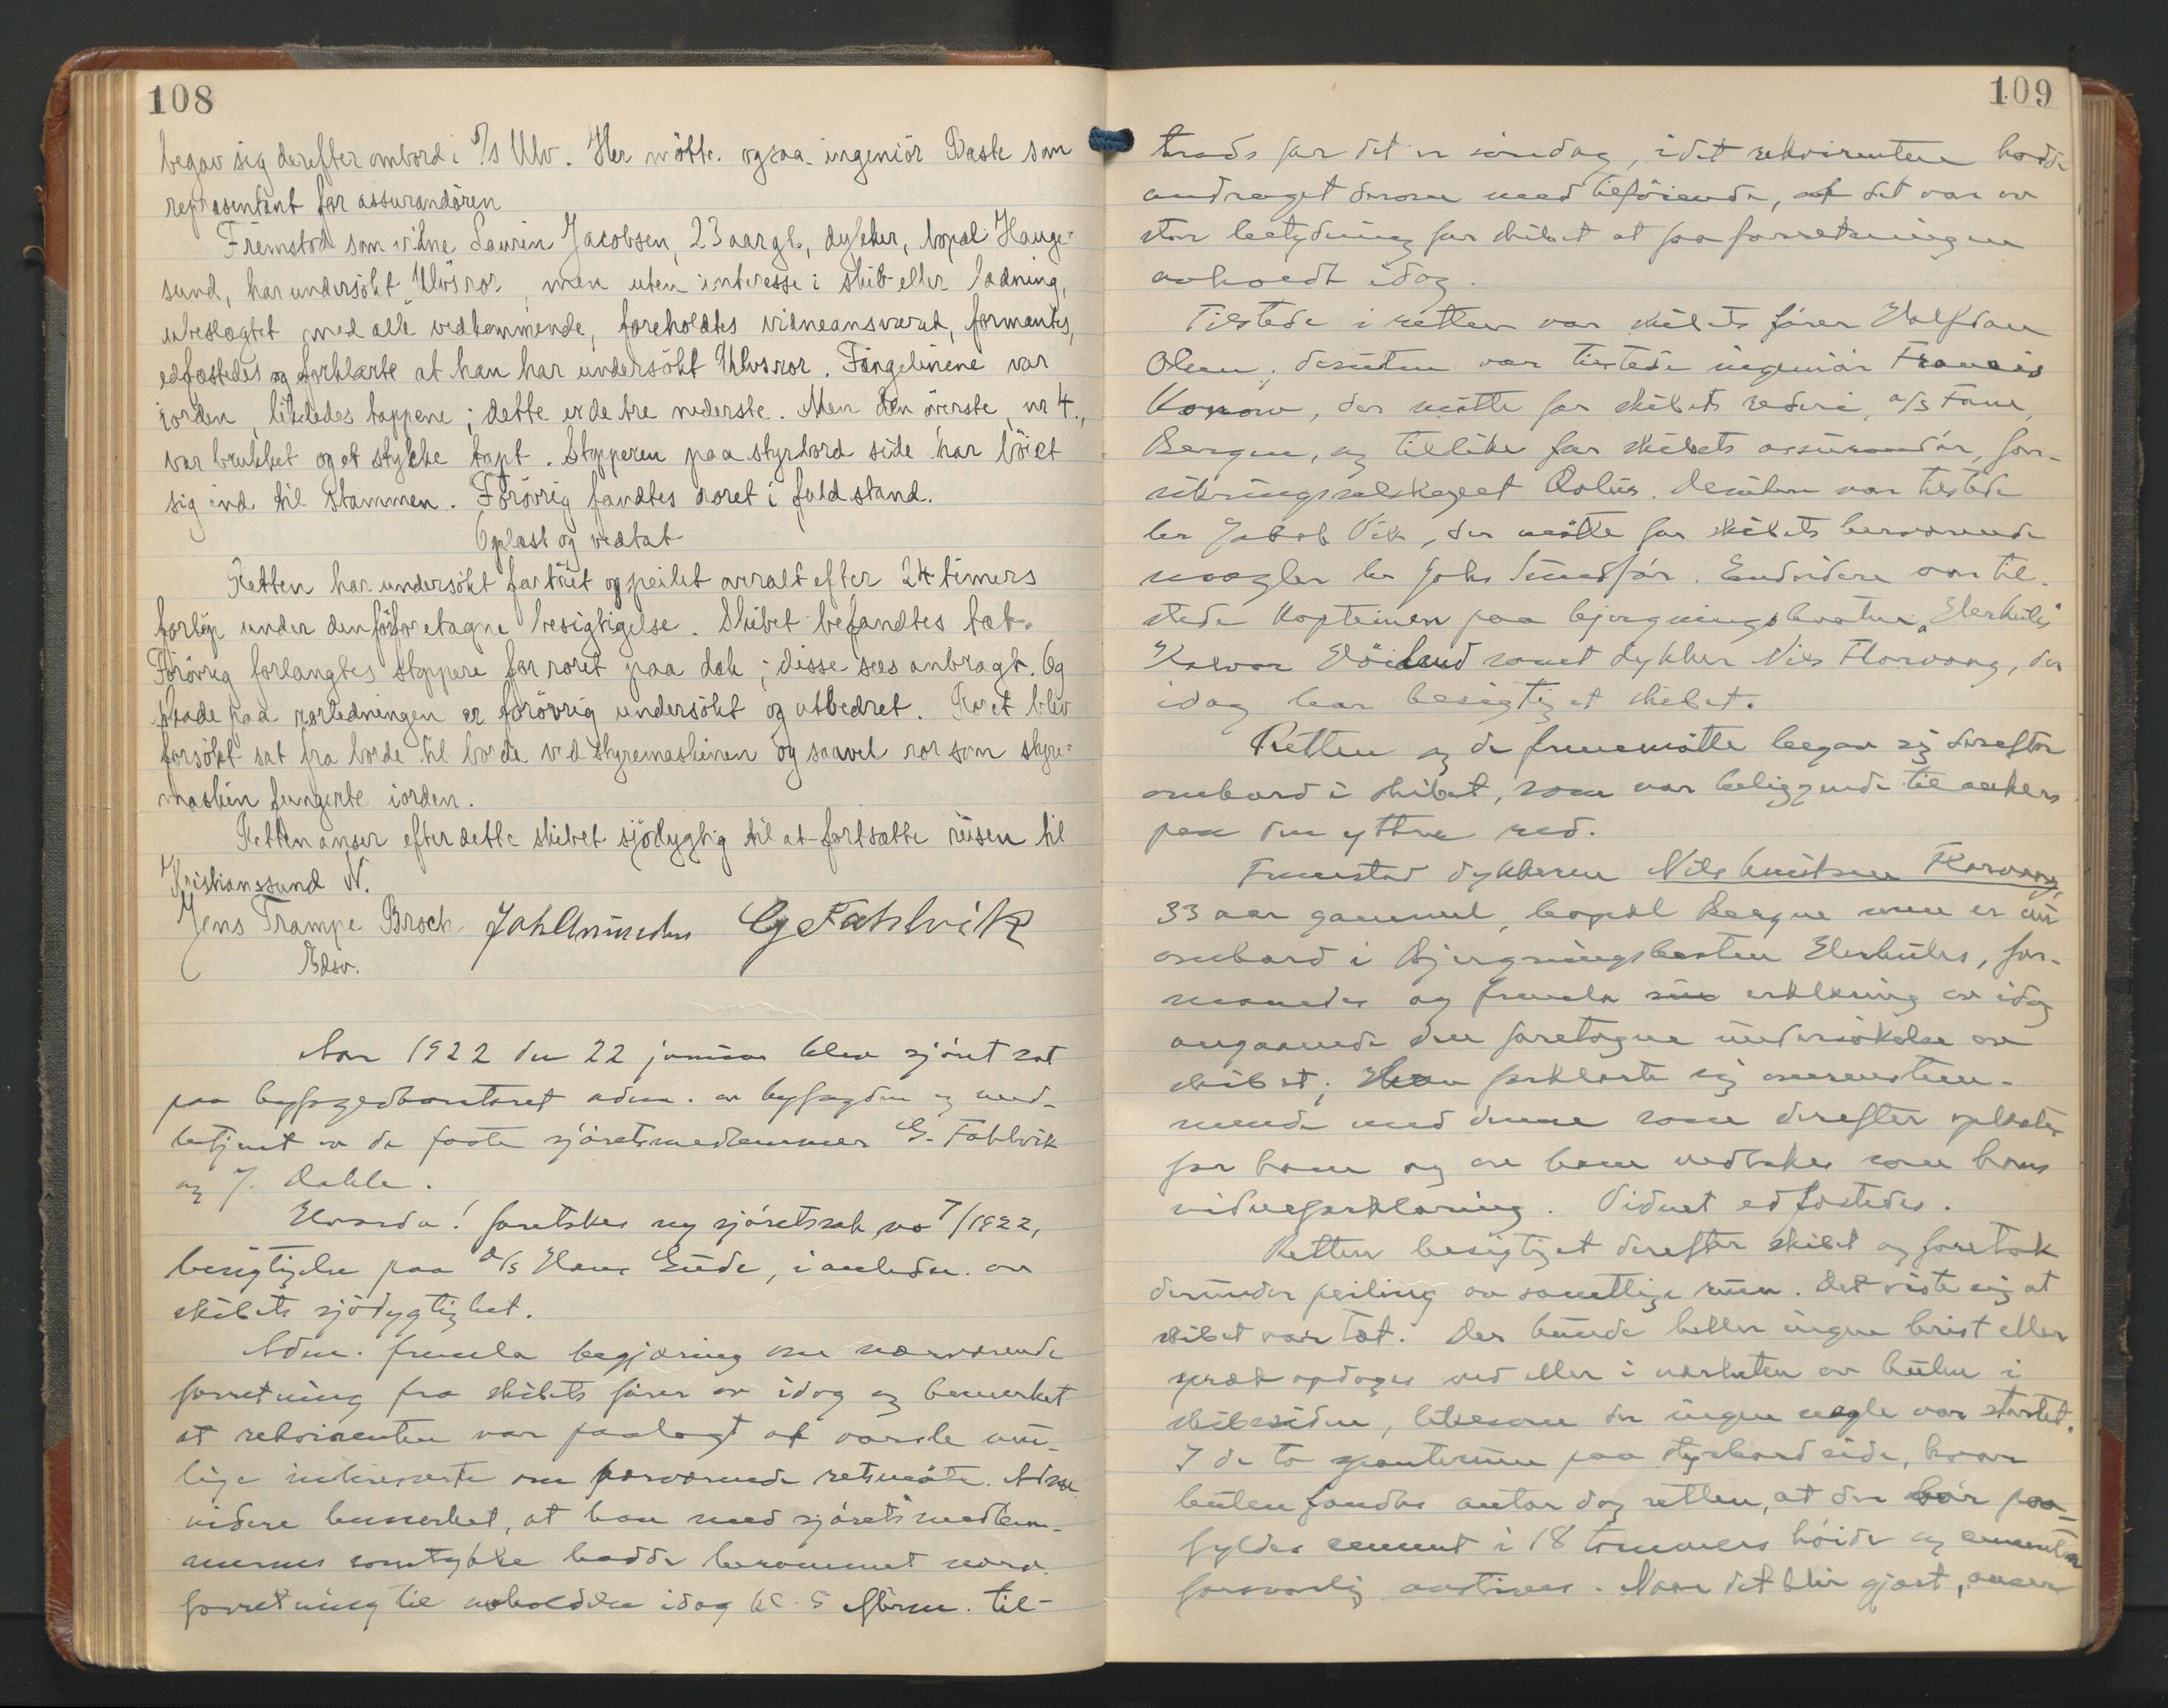 108
begav sig derefter ombord i S/S Ulv. Her mötte ogsaa ingeniör Baste som
representant for assurandören
Fremstod som vidne Laurin Jacobsen, 23 aar gl., dykker, bopæl Hauge=
sund, har undersökt Ulvs ror, men uten interesse i skib eller ladning,
ubeslægtet med alle vedkommende, foreholdtes vidneansvaret, formantes,
edfæstedes og forklarte at han har undersökt Ulvs ror. Fingelinene var
iorden, likeledes tappene; dette er de tre nederste. Men den överste, nr 4.,
var brukket og et stykke tapt. Stopperen paa styrbord side har böiet
sig ind til stammen. Forövrig fandtes roret i fuld stand.
Oplæst og vedtat
Retten har undersökt fartöiet og peilet overalt efter 24 timers
forlöp under den foretagne besigtigelse. Skibet befandtes tæt.
Forövrig forlangtes stoppere for roret paa dæk; disse sees anbragt. Og
skade paa rorledningen er forövrig undersökt og utbedret. Roret blev
forsökt sat fra borde til borde ved styremaskinen og saavel ror som styre=
maskin fungerte iorden.
Retten anser efter dette skibet sjödygtig til at fortsætte reisen til
Kristianssund N.
Jens Trampe Broch Joh Amundsen G Fahlvik
Edsv.
Aar 1922 den 22 januar blev sjöret sat
paa byfogedkontoret adm. av byfogden og med-
betjent av de faste sjöretsmedlemmer G. Fahlvik
og J. Dahle.
Hvorda! foretokes ny sjöretssak no 7/1922,
besigtigelse paa D/S Hans Gude, i anledn. av
skibets sjödygtighet.
Adm. fremla begjæring om nærværende
forretning fra skibets förer av idag og bemerket
at rekvirenten var paalagt at varsle mu-
lige interesserte om nærværende retsmöte. Adm.
videre bemerket, at han med sjöretsmedlem-
mernes samtykke hadde berammet nærv.
forretning til avholdelse idag kl. 5 efterm. til-
109
trods for det er söndag, idet rekvirenten hadde
andraget derom med tilföiende, at det var av
stor betydning for skibet at faa forretningen
avholdt idag.
Tilstede i retten var skibets förer Halfdan
Olsen; desuten var tilstede ingeniör Francis
Konow, der mötte for skibets rederi, A/S Fane,
Bergen, og tillike for skibets assurandör, for-
sikringsselskapet Æolus. Desuten var tilstede
hr Jakob Vik, der mötte for skibets herværende
mægler hr Johs Sundför. Endvidere var til-
stede kapteinen paa bjergningsbaaten "Herkules"
Halvor Höilund samt dykker Nils Florvaag, der
idag har besigtiget skibet.
Retten og de fremmötte begav sig derefter
ombord i skibet, som var beliggende til ankers
paa den yttre red.
Fremstod dykkeren Nils Knutsen Florvaag,
33 aar gammel, bopæl Bergen men er nu
ombord i Bjergningsbaaten Herkules, for-
manedes og fremla sin erklæring av idag
angaaende den foretagne undersökelse av
skibet; Han forklarte sig overensstem-
mende med denne som derefter oplæstes
for ham og av ham vedtokes som hans
vidneforklaring. Vidnet edfæstedes.
Retten besigtiget derefter skibet og foretok
derunder peiling av samtlige rum. Det viste sig at
skibet var tæt. Der kunde heller ingen brist eller
spræk opdages ved eller i nærheten av bulen i
skibssiden, likesom der ingen nagle var startet.
I de to spanterum paa styrbord side, hvor
bulen fandtes antar dog retten, at der bör paa-
fyldes cement i 18 tommers höide og cementen
forsvarlig avstives. Naar det blir gjort, anser